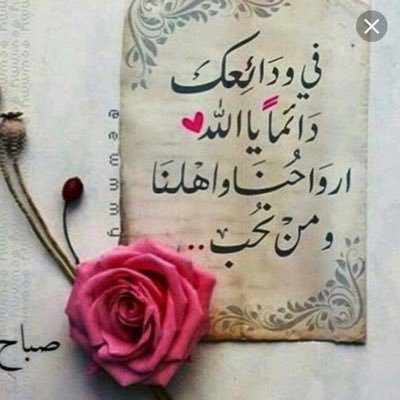 في ودَائِعِك
دَائماً يا الله
اروَاحُنَا واهْلنَا
ومنْ نُحُب..
صباح
eewwmmy